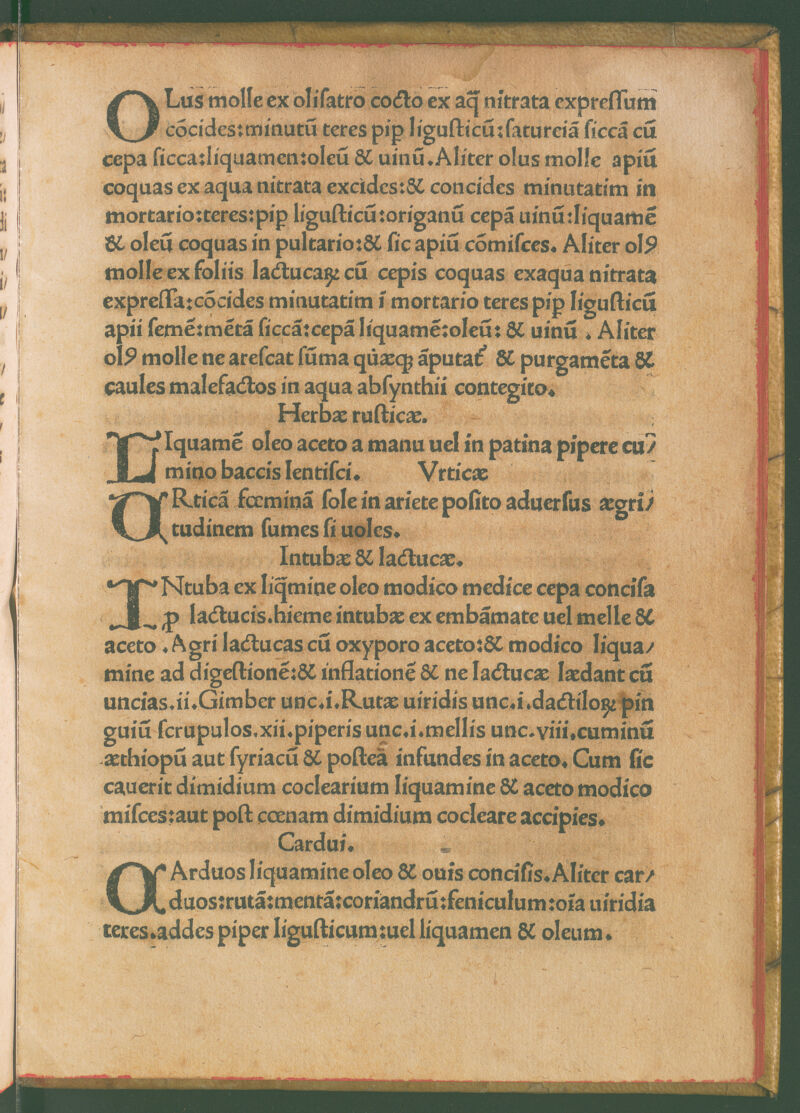 OLus molle ex olisatro cocto ex aq̄ nitrata expressum
cōcides:minutū teres pip ligusticū:satureiā siccā cū
cepa sicca:liquamen:oleū & uinū.Aliter olus molle apiū
coquas ex aqua nitrata excides:& concides minutatim in
mortario:teres:pip ligusticū:origanū cepā uinū:liquamē
& oleū coquas in pultario:& sic apiū cōmisces. Aliter olꝰ
molle ex foliis lactucaꝝ cū cepis coquas exaqua nitrata
expressa:cōcides minutatim ī mortario teres pip ligusticū
apii semē:mētā siccā:cepā liquamē:oleū: & uinū . Aliter
olꝰ molle ne arescat sūma quæqꝫ āputat́ & purgamēta &
caules malefactos in aqua absynthii contegito.
Herbæ rusticæ.
LIquamē oleo aceto a manu uel in patina pipere cu⁊
mino baccis lentisci. Vrticæ
VRticā fœminā sole in ariete posito aduersus ægri/
tudinem sumes si uoles.
Intubæ & lactucæ.
INtuba ex liq̄mine oleo modico medice cepa concisa
ꝓ lactucis.hieme intubæ ex embāmate uel melle &
aceto .Agri lactucas cū oxyporo aceto:& modico liqua/
mine ad digestionē:& inflationē & ne lactucæ lædant cū
uncias.ii.Gimber unc.i.Rutæ uiridis unc.i.dactiloꝝ pin
guiū scrupulos.xii.piperis unc.i.mellis unc.viii.cuminū
æthiopū aut syriacū & posteā infundes in aceto. Cum sic
cauerit dimidium coclearium liquamine & aceto modico
misces:aut post cœnam dimidium cocleare accipies.
Cardui.
CArduos liquamine oleo & ouis concisis.Aliter car/
duos:rutā:mentā:coriandrū:feniculum:oīa uiridia
teres.addes piper ligusticum:uel liquamen & oleum.